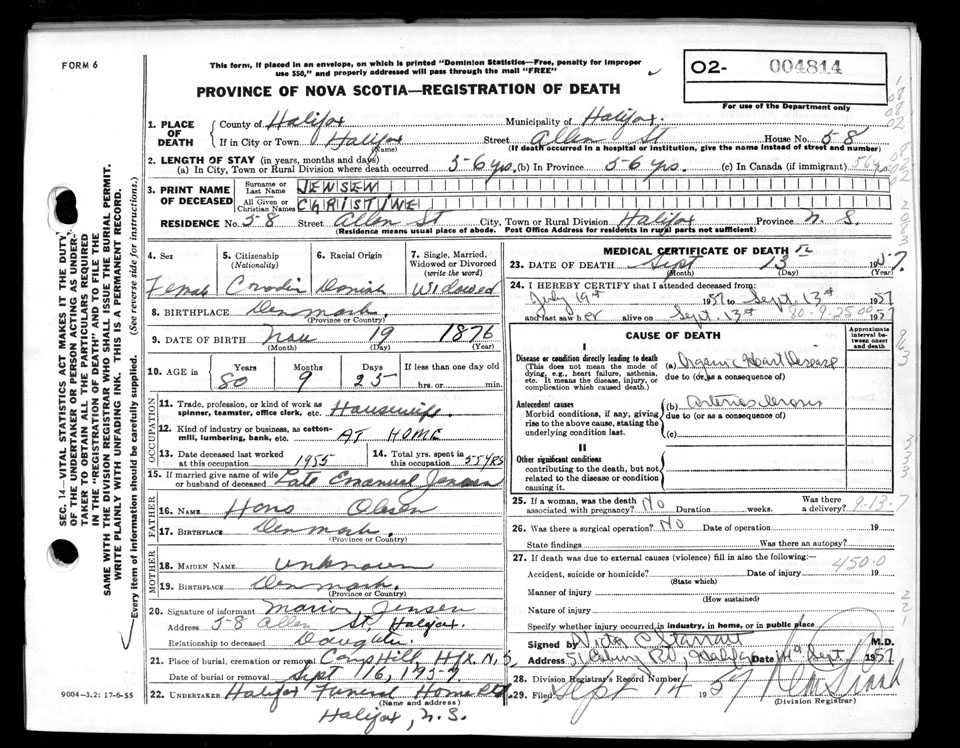 FORM 6
This form, if placed in an envelope, on which is printed "Dominion Statistics—Free, penalty for improper
use $50," and properly addressed will pass through the mail "FREE"
PROVINCE OF NOVA SCOTIA—REGISTRATION OF DEATH
02- 004814
For use of the Department only
1. PLACE OF DEATH County of Halifax Municipality of Halifax.
If in City or Town Halifax (Name) Street Allen St House No. 58
(If death occurred in a hospital or institution, give the name instead of street and number)
2. LENGTH OF STAY (in years, months and days)
(a) In City, Town or Rural Division where death occurred 56 yrs. (b) In Province 56 yrs. (c) In Canada (if immigrant) 56 yrs
3. PRINT NAME OF DECEASED Surname or Last Name JENSEN
All Given or Christian Names CHRISTINE
RESIDENCE No. 58 Street Allen St City, Town or Rural Division Halifax Province N. S.
(Residence means usual place of abode. Post Office Address for residents in rural parts not sufficient)
4. Sex 5. Citizenship (Nationality) 6. Racial Origin 7. Single, Married, Widowed or Divorced (write the word)
Female Danish Widowed
8. BIRTHPLACE Denmark.
(Province or Country)
9. DATE OF BIRTH Nov 19 1876
(Month) (Day) (Year)
10. AGE Years Months Days If less than one day old
80 9 25 hrs. or min.
OCCUPATION
11. Trade, profession, or kind of work as spinner, teamster, office clerk, etc. Housewife.
12. Kind of industry or business, as cotton-mill, lumbering, bank, etc. AT HOME
13. Date deceased last worked at this occupation 1955 14. Total yrs. spent in this occupation 55 YRS
15. If married give name of wife or husband of deceased Late Emanuel Jensen
FATHER
16. NAME Hans Olsen
17. BIRTHPLACE Denmark.
(Province or Country)
MOTHER
18. MAIDEN NAME Unknown
19. BIRTHPLACE Denmark.
(Province or Country)
20. Signature of informant Marion Jensen
Address 58 Allen St. Halifax.
Relationship to deceased Daughter.
21. Place of burial, cremation or removal Camp Hill Hfx. N. S.
Date of burial, cremation or removal Sept 16, 1957
22. UNDERTAKER Halifax Funeral Home Ltd.
(Name and address)
Halifax, N. S.
MEDICAL CERTIFICATE OF DEATH
23. DATE OF DEATH Sept 13th 1957
(Month) (Day) (Year)
24. I HEREBY CERTIFY that I attended deceased from:
July 19th 1957 to Sept. 13th 1957
and last saw her alive on Sept. 13th 1957
80-9-25
CAUSE OF DEATH
Approximate interval between onset and death
I
Disease or condition directly leading to death
(This does not mean the mode of dying, e.g., heart failure, asthenia, etc. It means the disease, injury, or complication which caused death.)
(a) Organic Heart Disease
due to (or as a consequence of)
Antecedent causes
Morbid conditions, if any, giving rise to the above cause, stating the underlying condition last.
(b) Arteriosclerosis
due to (or as a consequence of)
(c)
II
Other significant conditions
contributing to the death, but not related to the disease or condition causing it.
25. If a woman, was the death associated with pregnancy? No Duration weeks. Was there a delivery?
9-13-7
26. Was there a surgical operation? No Date of operation 19
State findings Was there an autopsy?
27. If death was due to external causes (violence) fill in also the following:—
450.0
Accident, suicide or homicide? Date of injury 19
(State which)
Manner of injury
(How sustained)
Nature of injury
Specify whether injury occurred in industry, in home, or in public place
Signed by Victor M.D.
Address Halifax Date 14th Sept 1957
28. Division Registrar's Record Number
29. Filed Sept 14 1957
(Division Registrar)
9004—3.2: 17-6-55
SEC. 14—VITAL STATISTICS ACT MAKES IT THE DUTY
OF THE UNDERTAKER OR PERSON ACTING AS UNDER-
TAKER TO OBTAIN ALL THE PARTICULARS REQUIRED
IN THE "REGISTRATION OF DEATH" AND TO FILE THE
SAME WITH THE DIVISION REGISTRAR WHO SHALL ISSUE THE BURIAL PERMIT.
WRITE PLAINLY WITH UNFADING INK. THIS IS A PERMANENT RECORD.
Every item of information should be carefully supplied. (See reverse side for instructions.)